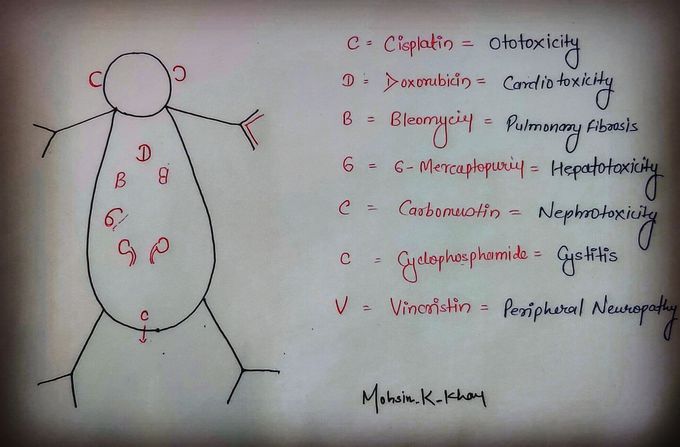 C
C
D
B
B
6
C
C
C
C = Cisplatin = Ototoxicity
D = Doxorubicin = Cardiotoxicity
B = Bleomyciy = Pulmonary fibrosis
6 = 6-Mercaptopuriy = Hepatotoxicity
C = Carbomustin = Nephrotoxicity
C = Cyclophosphamide = Cystitis
V = Vincristin = Peripheral Neuropathy
Mohsin-K-Khay